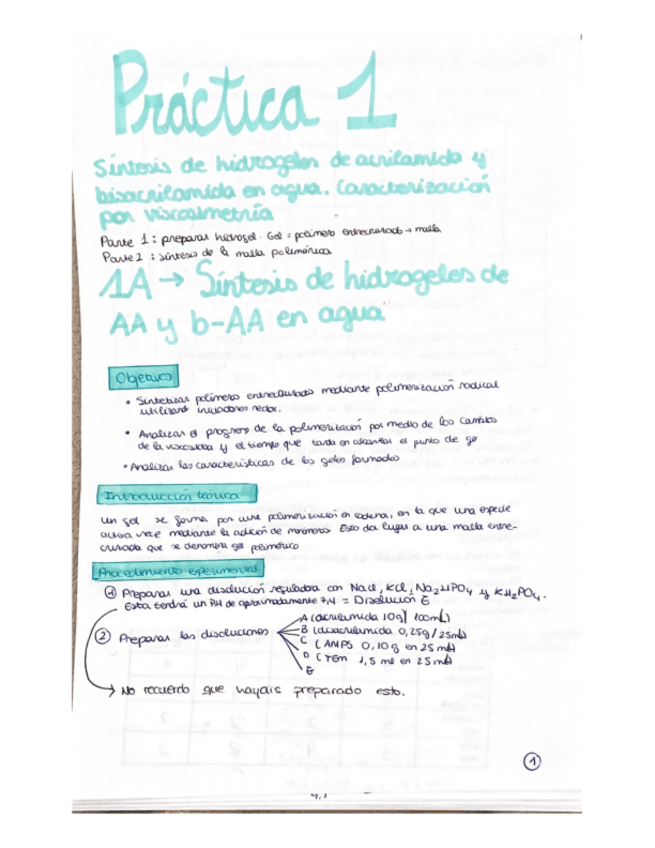 Práctica 1
Síntesis de hidrogeles de acrilamida y
bisacrilamida en agua. Caracterización
por viscosimetría
Parte 1: preparar hidrogel. Gel = polímero entrecruzado → malla
Parte 2: síntesis de la malla polimérica
1A → Síntesis de hidrogeles de
AA y b-AA en agua
Objetivo
• Sintetizar polímero entrecruzado mediante polimerización radical
utilizant iniciadores redox.
• Analizar el progreso de la polimerización por medio de los cambios
de la viscosidad y el tiempo que tarda en alcanzar el punto de ge
• Analizar las características de los geles formados
Introducción teórica
Un gel se forma por una polimerización en cadena, en la que una especie
activa crece mediante la adición de monómeros Esto da lugar a una malla entre-
cruzada que se denomina gel polimérico
Procedimiento experimental
① Preparar una disolución reguladora con NaCl, KCl, Na2HPO4 y KH2PO4.
Esta tendrá un PH de aproximadamente 7,4 = Disolución E
② Preparar las disoluciones
A (acrilamida 10g/ 100mL)
B (bisacrilamida 0,25g/25ml)
C (AMPS 0,10 g en 25 ml)
D (TEM 1,5 ml en 25 ml)
E
→ No recuerdo que hayáis preparado esto.
①